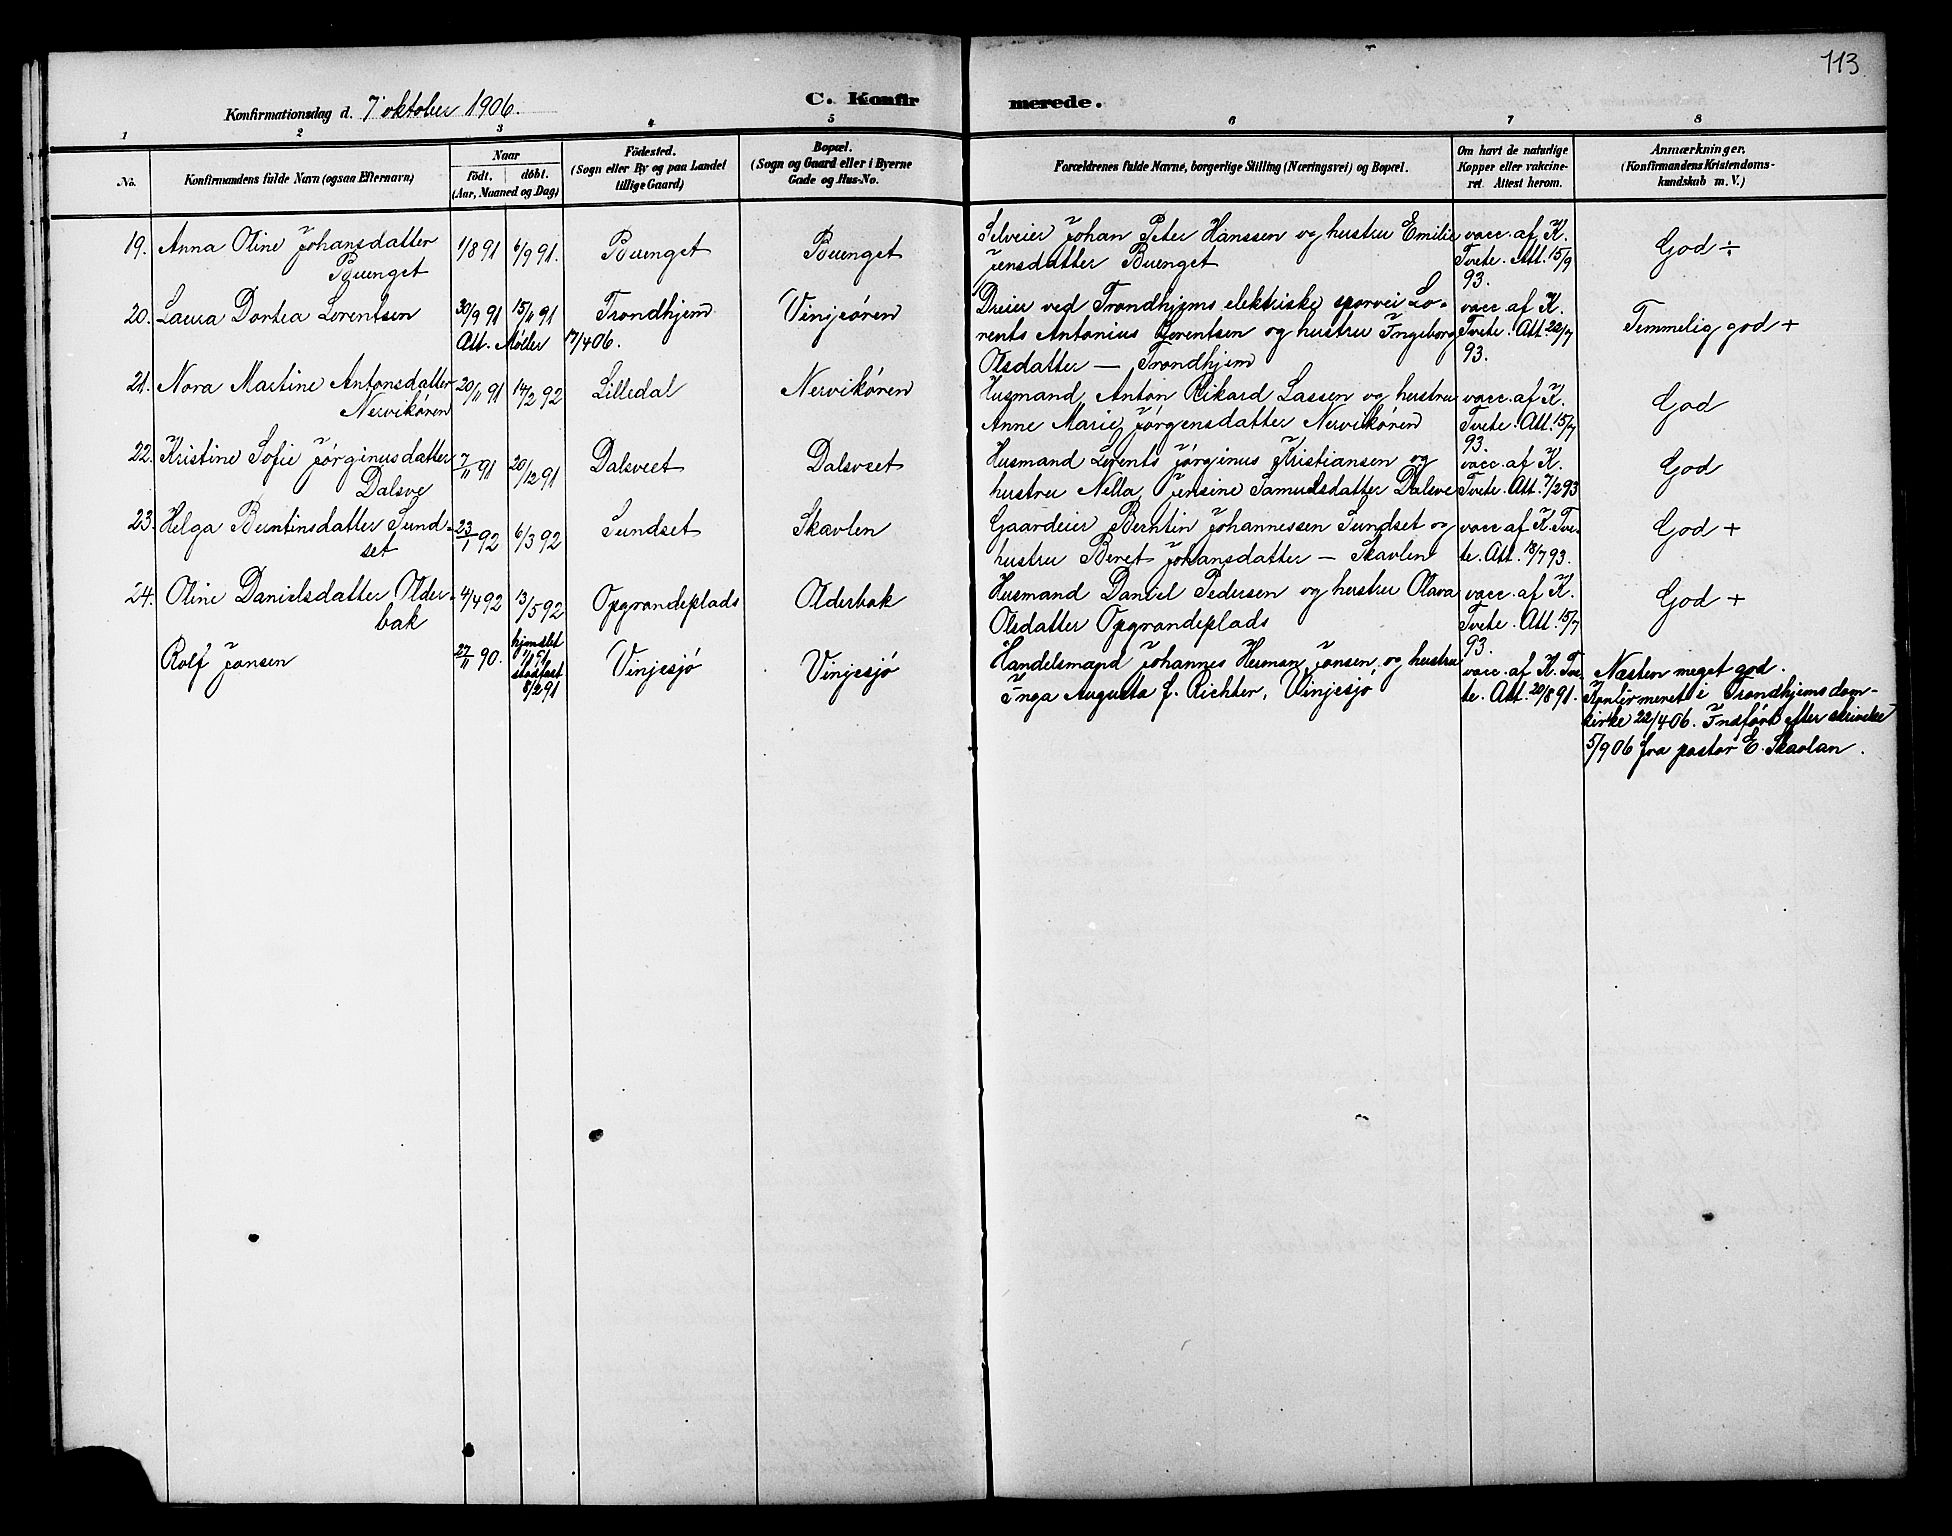 113
Konfirmationsdag d. 7 oktober 1906.
C. Konfir merede.
1 2 3 4 5 6 7 8
No.
Konfirmandens fulde Navn (ogsaa Efternavn)
Naar
Födt, döbt.
(Aar, Maaned og Dag)
Födested.
(Sogn eller By og paa Landet
tillige Gaard)
Bopæl.
(Sogn og Gaard eller i Byerne
Gade og Hus-No.
Forældrenes fulde Navne, borgerlige Stilling (Næringsvei) og Bopæl.
Om havt de naturlige
Kopper eller vakcine-
ret. Attest herom.
Anmærkninger.
(Konfirmandens Kristendoms-
kundskab m. V.)
19. Anna Oline Johansdatter
Buenget
1/8 91 6/9 91. Buenget Buenget
Selveier Johan Peter Hanssen og hustru Emilie
Jensdatter Buenget
vacc. af K.
Tvete. Att. 15/9
93.
God ÷
20. Laura Dortea Lorentsen
30/9 91 15/11 91 Trondhjem Vinjeören
Att. Møller 17/4 06.
Dreier ved Trondhjems elektriske sporvei Lo-
rents Antonius Lorentsen og hustru Ingeborg
Olsdatter — Trondhjem
vacc. af K.
Tvete. Att. 22/7
93.
Temmelig god +
21. Nora Martine Antonsdatter
Nervikören
20/11 91 14/2 92 Lilledal Nervikören
Husmand Anton Rikard Lassen og hustru
Anne Marie Jörgensdatter Nervikören
vacc. af K.
Tvete. Att. 15/7
93.
God
22. Kristine Sofie Jörginusdatter
Dalsve
7/11 91 20/12 91 Dalsveet Dalsvet
Husmand Lorents Jörginus Kristiansen og
hustru Nella Jensine Samuelsdatter Dalsve
vacc. af K.
Tvete. Att. 7/2 93
God
23. Helga Berntinsdatter Sund-
set
23/1 92 6/3 92 Sundset Skavlen
Gaardeier Berntin Johannessen Sundset og
hustru Beret Johansdatter — Skavlen
vacc af K. Tve-
te. Att. 18/7 93.
God +
24. Oline Danielsdatter Older-
bak
4/4 92 13/5 92 Opgrandeplads Olderbak
Husmand Daniel Pedersen og hustru Olava
Olsdatter Opgrandeplads
vacc. af K.
Tvete. Att. 15/7
93.
God +
Rolf Jonsen
27/11 90. hjemdöbt
stadfæst
8/2 91
Vinjesjö Vinjesjö
Handelsmand Johannes Herman Jonsen og hustru
Inga Augusta f. Richter, Vinjesjö
vacc. af K. Tve-
te. Att. 20/8 91.
Næsten meget god.
Konfirmeret i Trondhjems dom-
kirke 22/4 06. Indført efter skrivelse
5/9 06 fra pastor E. Skavlan.